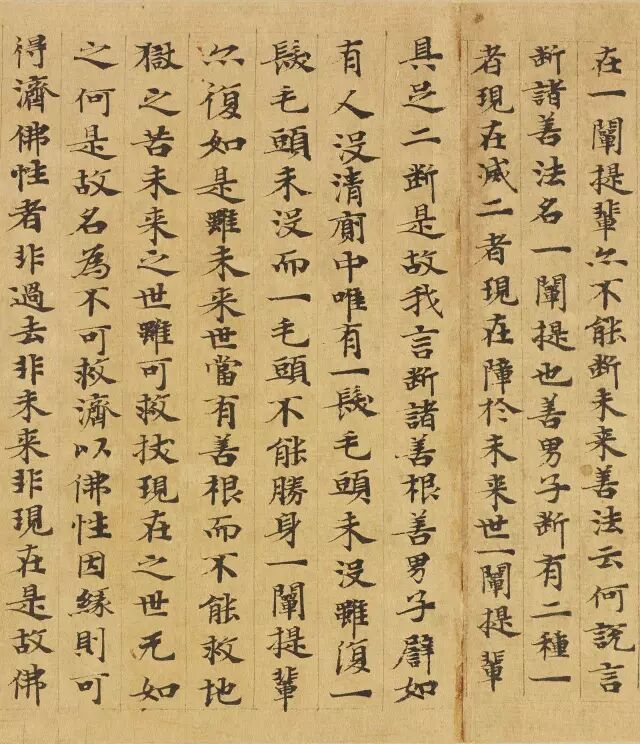 在一闡提輩亦不能断未来善法云何説言
断諸善法名一闡提也善男子断有二種一
者現在滅二者現在障於未来世一闡提輩
具足二断是故我言断諸善根善男子譬如
有人没清廁中唯有一髮毛頭未没雖復一
髮毛頭未没而一毛頭不能勝身一闡提輩
亦復如是雖未来世當有善根而不能救地
獄之苦未来之世雖可救拔現在之世无如
之何是故名為不可救濟以佛性因緣則可
得濟佛性者非過去非未来非現在是故佛